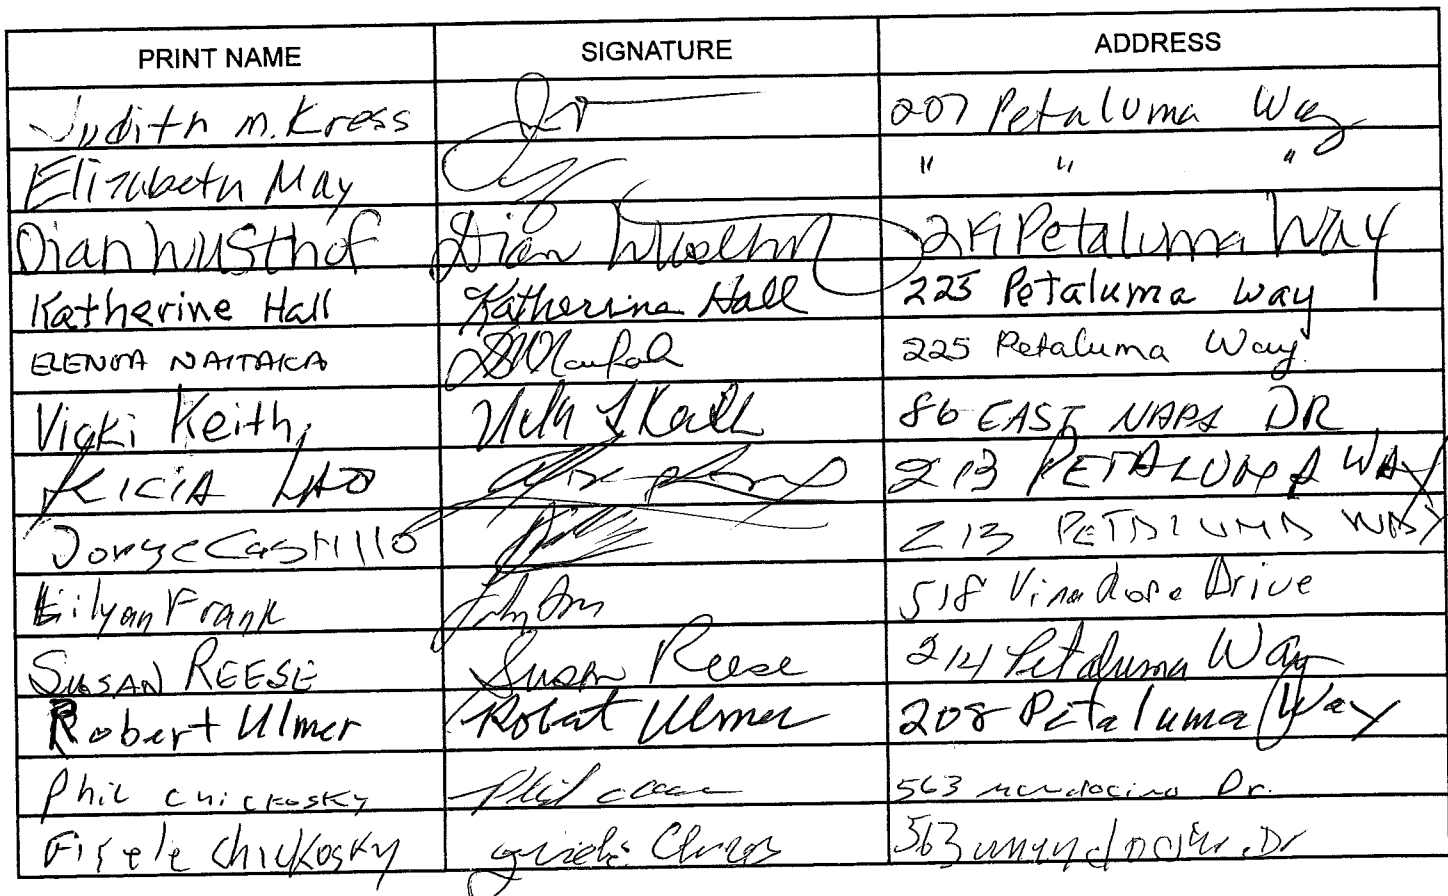 PRINT NAME SIGNATURE ADDRESS
Judith M. Kress 207 Petaluma Way
Elizabeth May " " "
Dian Wusthof Dian 219 Petaluma Way
Katherine Hall Katherine Hall 225 Petaluma Way
ELENOA NAITAKA 225 Petaluma Way.
Vicki Keith 86 EAST NAPA DR
LAO 213 PETALUMA WAY
Jorge Castillo 213 PETALUMA WAY
Frank 518 Vina Rosa Drive
SUSAN REESE Susan Reese 214 Petaluma Way
Robert Ulmer Robert Ulmer 208 Petaluma Way
Phil Chickosky Phil 563 Mendocino Dr.
Gisele Chickosky 563 Dr